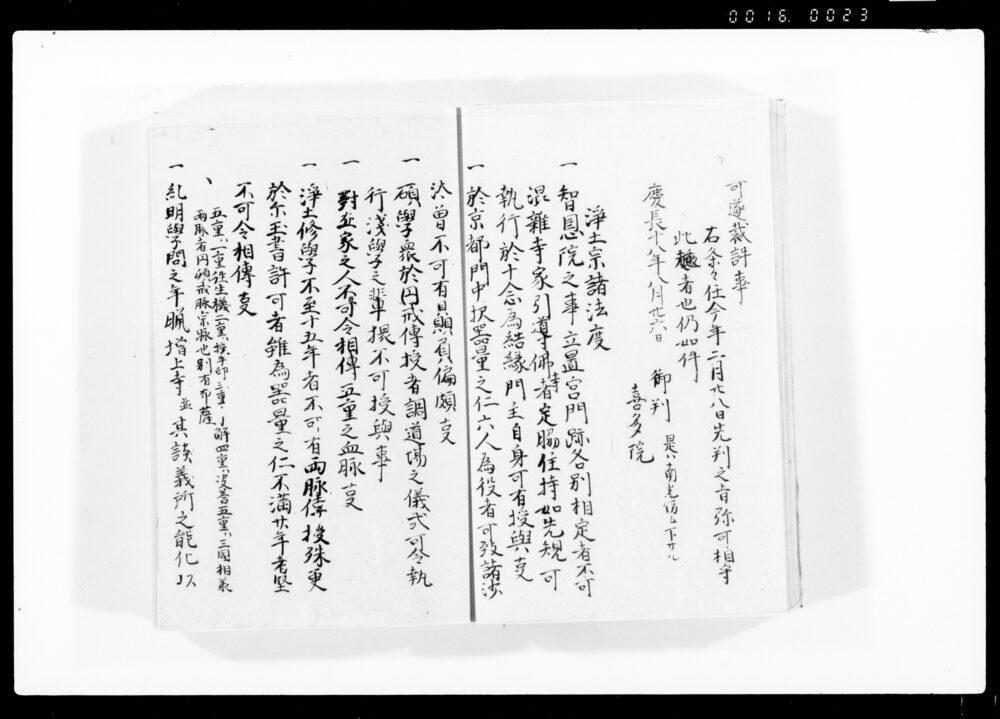 0016. 0023
可遂裁許事
右条々任今年二月廿八日先判之旨弥可相守
此趣者也仍如件
慶長十八年八月廿六日 御判
喜多院
浄土宗諸法度
一 智恩院之事立置宮門跡各別相定者不可
混雑寺家引導仏寺者定脇住持如先規可
執行於十念為結縁門主自身可有授與叓
一 於京都門中択器量之仁六人為役者可致諸沙
汰曽不可有贔屓偏頗叓
一 碩學衆於円戒傳授者調道場之儀式可令執
行浅學之輩猥不可授與事
一 對在家之人不可令相傳五重之血脉叓
一 淨土修學不至十五年者不可有両脉傳授殊更
於尓璽書許可者雖為器量之仁不満廿年者堅
不可令相傳叓
五重ハ一重往生機二重ハ授手印三重ハ了解四重ハ
両脉者円頓戒脉宗脉也別有布薩
一 糺明學問之年臘増上寺並其談義所之能化以